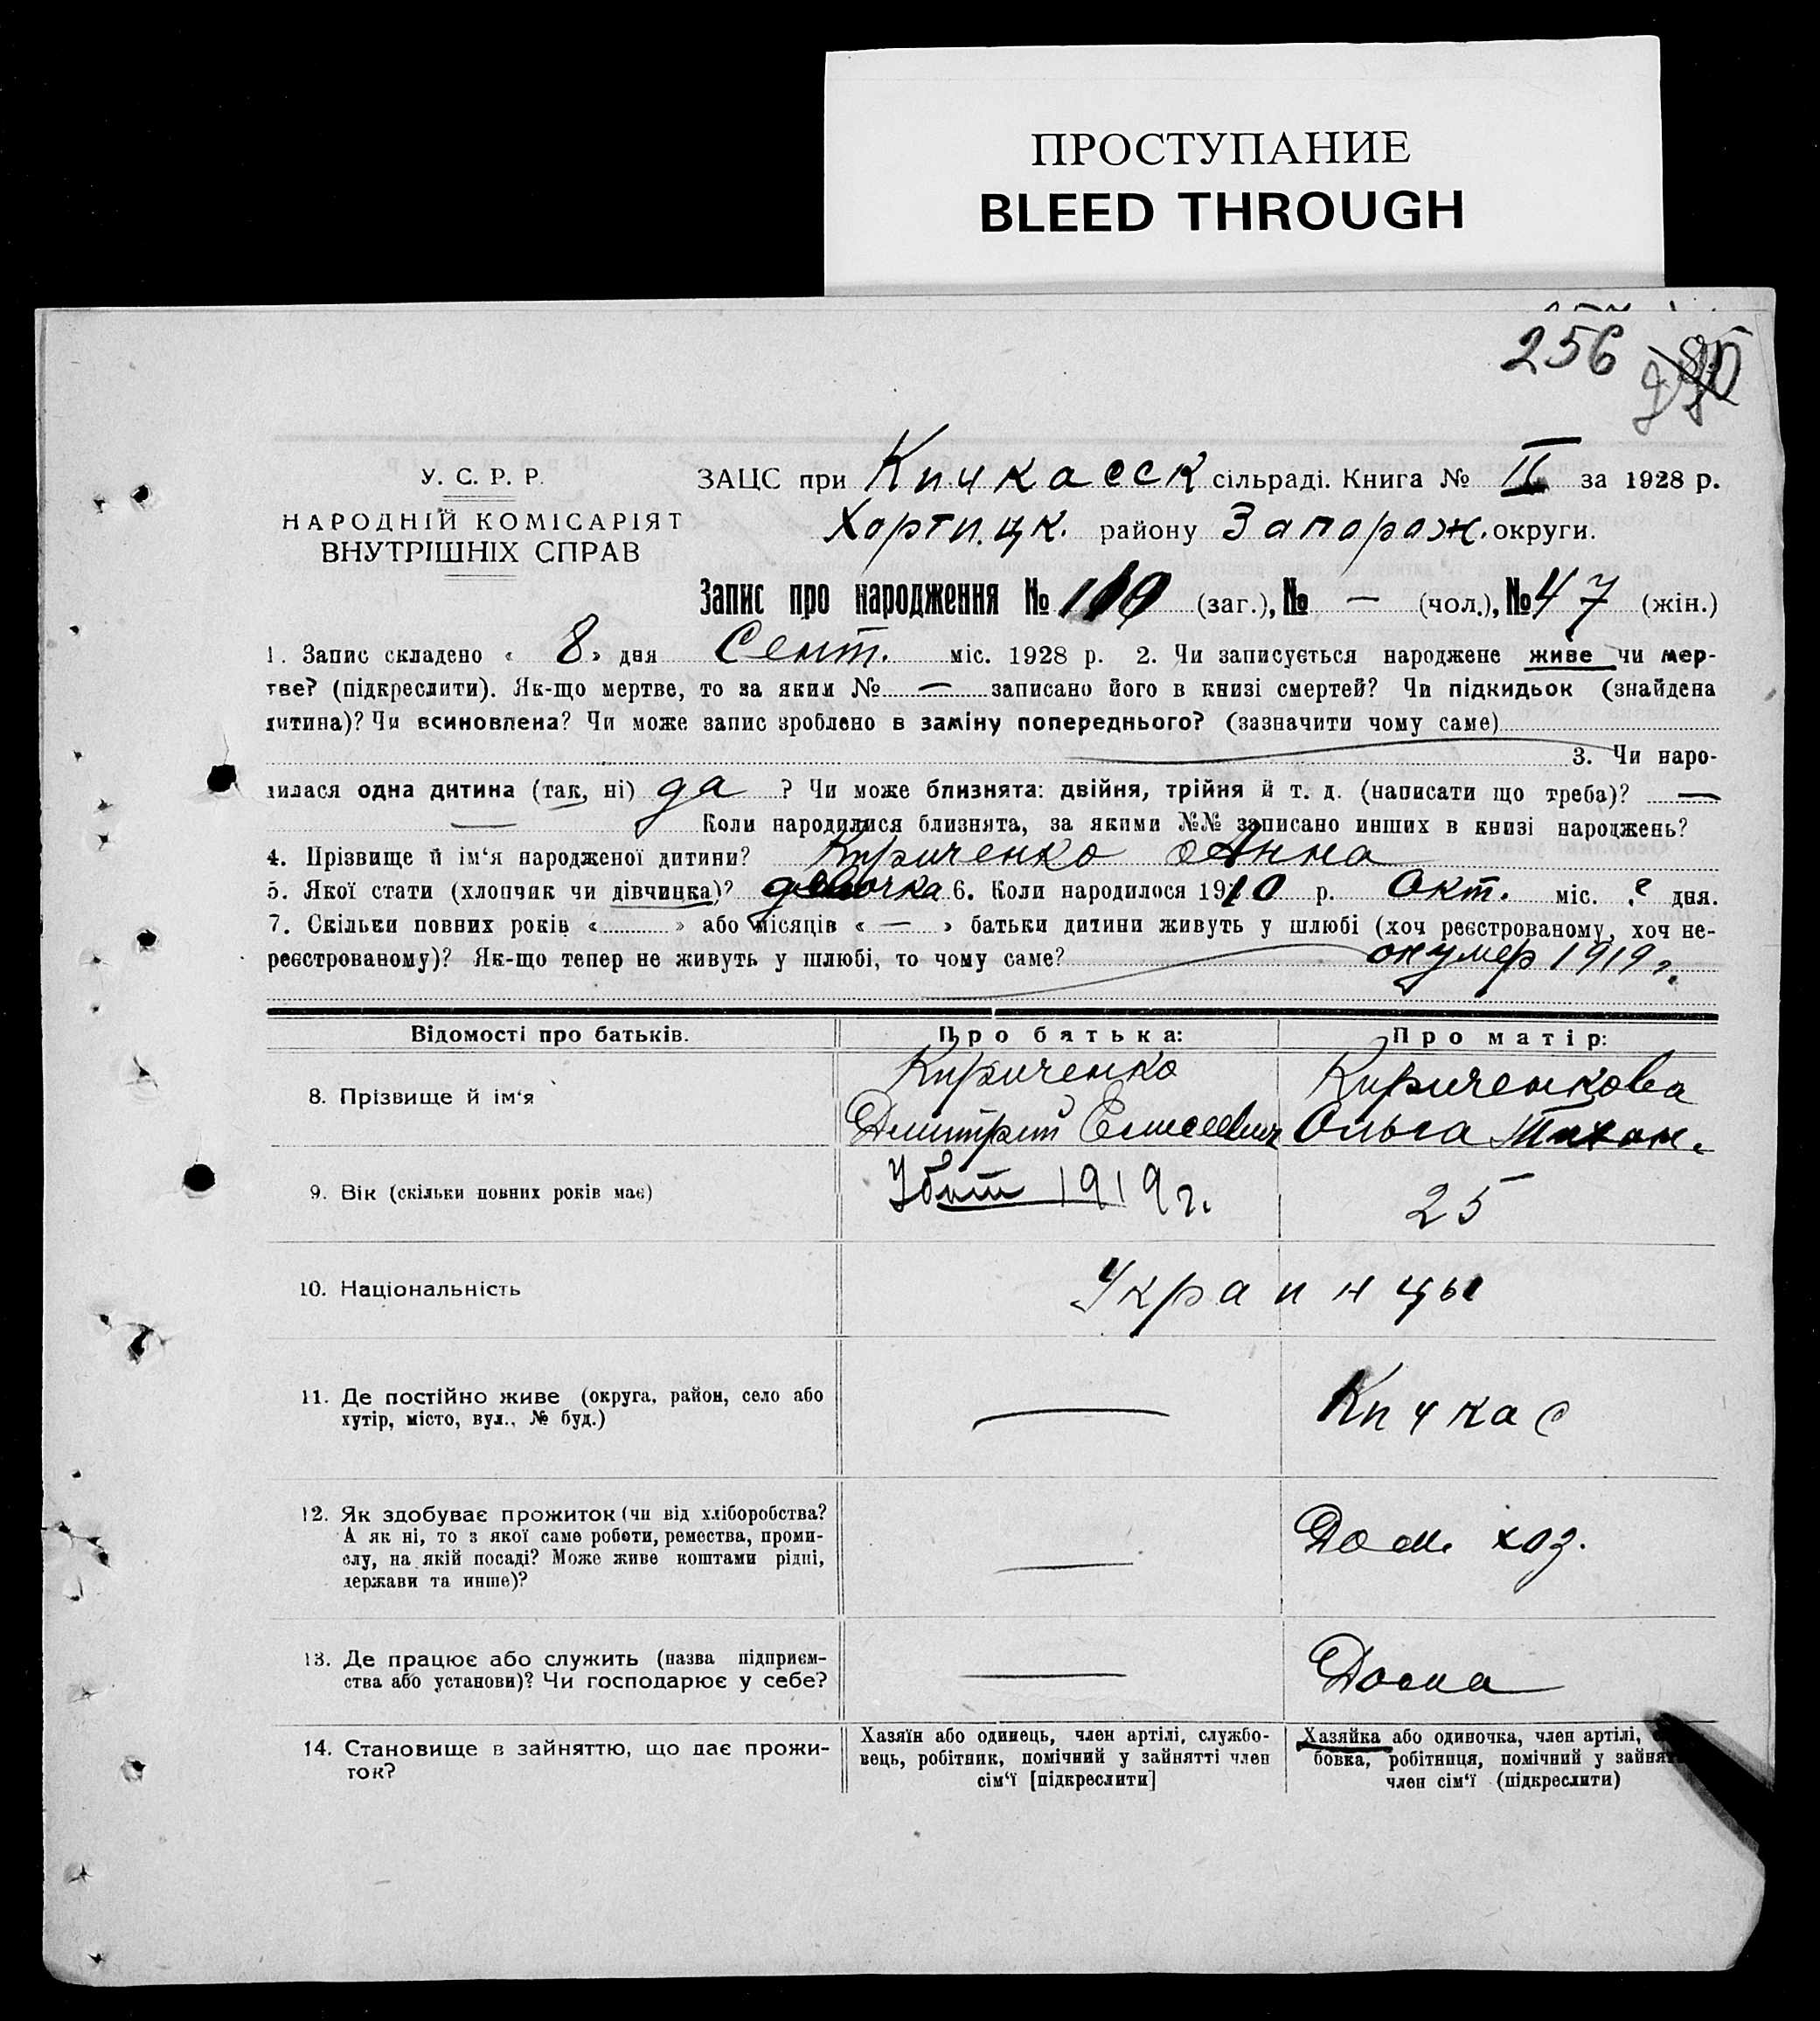 ПРОСТУПАНИЕ
BLEED THROUGH
256
У. С. Р. Р.
НАРОДНІЙ КОМІСАРІЯТ
ВНУТРІШНІХ СПРАВ
ЗАЦС при Кичкасск сільраді. Книга № II за 1928 р.
Хортицк. району Запорож. округи.
Запис про народження № 110 (заг.), № — (чол.), № 47 (жін.)
1. Запис складено « 8 » дня Сент. міс. 1928 р. 2. Чи записується народжене живе чи мер-
тве? (підкреслити). Як-що мертве, то за яким № — записано його в книзі смертей? Чи підкидьок (знайдена
дитина)? Чи всиновлена? Чи може запис зроблено в заміну попереднього? (зазначити чому саме)
3. Чи наро-
дилася одна дитина (так, ні) да ? Чи може близнята: двійня, трійня й т. д. (написати що треба)? —
— Коли народилися близнята, за якими №№ записано инших в книзі народжень?
4. Прізвище й ім‘я народженої дитини? Кириченко Анна
5. Якої стати (хлопчик чи дівчинка)? девочка 6. Коли народилося 1910 р. Окт. міс. ? дня.
7. Скільки повних років « » або місяців « — » батьки дитини живуть у шлюбі (хоч реєстрованому, хоч не-
реєстрованому)? Як-що тепер не живуть у шлюбі, то чому саме? он умер 1919 г.
Відомості про батьків. Про батька: Про матір:
8. Прізвище й ім‘я
Кириченко
Дмитрий Елисеевич
Кириченкова
Ольга Тихон.
9. Вік (скільки повних років має)
Убит 1919 г.
25
10. Національність
Украинцы
11. Де постійно живе (округа, район, село або
хутір, місто, вул., № буд.)
—
Кичкас
12. Як здобуває прожиток (чи від хліборобства?
А як ні, то з якої саме роботи, ремества, проми-
слу, на якій посаді? Може живе коштами рідні,
держави та инше)?
—
Дом. хоз.
13. Де працює або служить (назва підприєм-
ства або установи)? Чи господарює у себе?
—
Дома
14. Становище в зайняттю, що дає прожи-
ток?
Хазяїн або одинець, член артілі, службо-
вець, робітник, помічний у зайнятті член
сім‘ї [підкреслити]
Хазяйка або одиночка, член артілі,
бовка, робітниця, помічний у зайня
член сім‘ї (підкреслити)